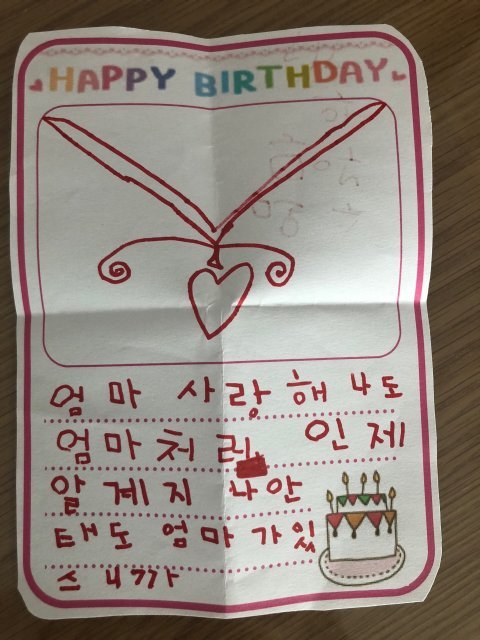 HAPPY BIRTHDAY
엄마 사랑해 나도
엄마처럼 인제
알게지 나안
태도 엄마가있
스니까